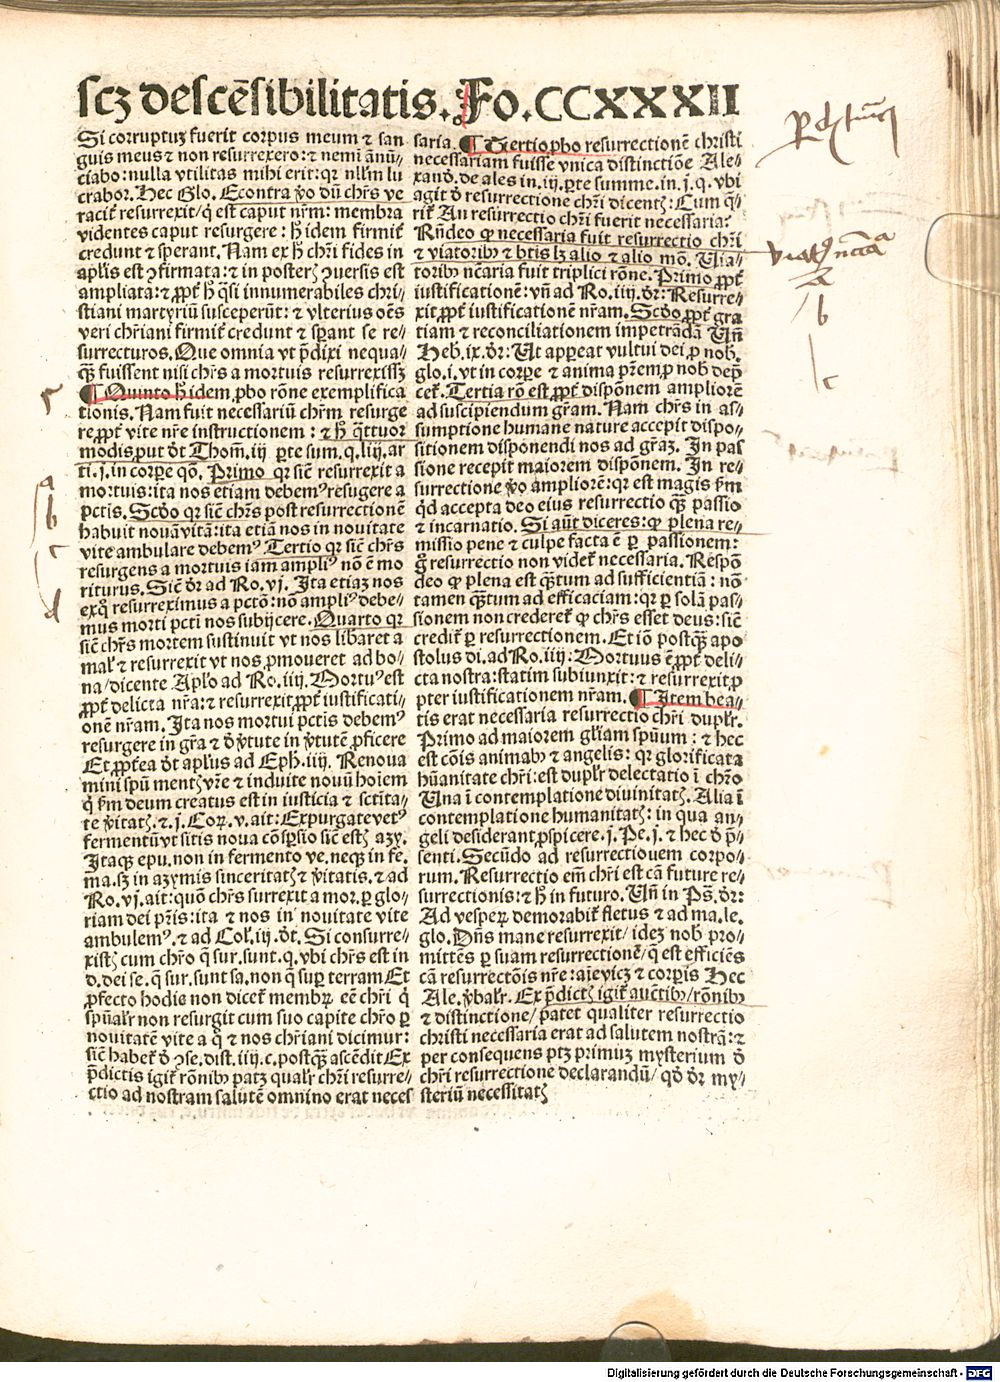 scꝫ descēsibilitatis. Fo. CCXXXII
Si corruptuꝫ fuerit corpus meum ⁊ san
guis meus ⁊ non resurrexero: ⁊ nemi ānū⸗
ciabo: nulla vtilitas mihi erit: qꝛ nllm lu
crabor. Hec Glo. Econtra ꝟo dū chꝛs ve
racit̉ resurrexit/ q̇ est caput nr̄m: membra
videntes caput resurgere: h̄ idem firmit̉
credunt ⁊ sperant. Nam ex h̄ chr̄i fides in
apl̓is est ꝯfirmata: ⁊ in posterꝭ ꝯuersis est
ampliata: ⁊ ꝓpt̉ h̄ q̄si innumerabiles chri⸗
stiani martyriū susceperūt: ⁊ vlterius oēs
veri chr̄iani firmit̉ credunt ⁊ sꝑant se re⸗
surrecturos. Que omnia vt p̄dixi nequa⸗
qꝫ̄ fuissent nisi chr̄s a mortuis resurrexissꝫ
¶ Quinto h̄ idem ꝓbo rōne exemplifica
tionis. Nam fuit necessariū chr̄m resurge
re ꝓpt̉ vite nr̄e instructionem: ⁊ h̄ q̄ttuor
modis ꝓut ðt Thom̄. iij ꝑte sum. q. liij. ar
ti. j. in corꝑe qō. Primo qꝛ sic̄ resurrexit a
mortuis: ita nos etiam debemꝰ resugere a
pctis. Scðo qꝛ sic̄ chr̄s post resurrectionē
habuit nouā vitā: ita etiā nos in nouitate
vite ambulare debemꝰ Tertio qꝛ sic̄ chr̄s
resurgens a mortuis iam ampliꝰ nō ē mo
riturus. Sic̄ ðr ad Ro. vj. Ita etiaꝫ nos
exq̊ resurreximus a pctō: nō ampliꝰ debe⸗
mus morti pcti nos subijcere. Quarto qꝛ
sic̄ chr̄s mortem sustinuit vt nos liƀaret a
mal̓ ⁊ resurrexit vt nos ꝓmoueret ad bo⸗
na/ dicente Apl̓o ad Ro. iiij. Mortuꝰ est
ꝓpt̉ delicta nr̄a: ⁊ resurrexit ꝓpt̉ iustificati⸗
onē nr̄am. Ita nos mortui pctis debemꝰ
resurgere in gr̄a ⁊ ð ꝟtute in ꝟtutē ꝓficere
Et ꝓpt̉ea ðt apl̓us ad Eph. iiij. Renoua
mini spū mentꝭ vr̄e ⁊ induite nouū hoiem
q̇ ẜm deum creatus est in iusticia ⁊ sctīta⸗
te ꝟitatꝭ. ⁊ .j. Coꝝ. v. ait: Expurgate vetꝰ
fermentū vt sitis noua cōsꝑsio sic̄ estꝭ azy.
Itaqꝫ epu. non in fermento ve. neqꝫ in fe.
ma. sꝫ in azymis sinceritatꝭ ⁊ ꝟitatis. ⁊ ad
Ro. vj. ait: quō chr̄s surrexit a mor. ꝑ glo⸗
riam dei pr̄is: ita ⁊ nos in nouitate vite
ambulemꝰ. ⁊ ad Col̓. iij. ðt. Si consurre⸗
xistꝭ cum chr̄o q̄ sur. sunt. q. vbi chr̄s est in
d. dei se. q̄ sur. sunt sa. non q̄ suꝑ terram Et
ꝓfecto hodie non dicet̉ membꝝ eē chr̄i q̇
spūal̓r non resurgit cum suo capite chr̄o ꝑ
nouitatē vite a q̊ ⁊ nos chr̄iani dicimur:
sic̄ habet̉ ð ꝯse. dist. iiij. c. postqꝫ̄ ascēdit Ex
p̄dictis igit̉ rōnibꝰ patꝫ qual̓r chr̄i resurre⸗
ctio ad nostram salutē omnino erat neces
saria. ¶ Tertio ꝓbo resurrectionē christi
necessariam fuisse vnica distinctiōe Ale⸗
xand̄. de ales in. iij. ꝑte summe. in. j. q. vbi
agit ð resurrectione chr̄i dicentꝭ: Cum q̄⸗
rit̉ An resurrectio chr̄i fuerit necessaria:
Rn̄deo ꝙ necessaria fuit resurrectio chr̄i
⁊ viatoribꝰ ⁊ btis lꝫ alio ⁊ alio mō. Uia⸗
toribꝰ nc̄aria fuit triplici rōne. Primo ꝓpt̉
iustificationē: vn̄ ad Ro. iiij. ðr: Resurre⸗
xit ꝓpt̉ iustificationē nr̄am. Scðo ꝓpt̉ gra
tiam ⁊ reconciliationem impetrādā Un̄
Heb. ix. ðr: Ut appeat vultui dei ꝓ nob̄.
glo. i. vt in corꝑe ⁊ anima pr̄em ꝓ nob̄ dep̄
cet̉. Tertia rō est ꝓpt̉ dispōnem ampliorē
ad suscipiendum gr̄am. Nam chr̄s in as⸗
sumptione humane nature accepit dispo⸗
sitionem disponendi nos ad gr̄aꝫ. In pas
sione recepit maiorem dispōnem. In re⸗
surrectione ꝟo ampliorē: qꝛ est magis ẜm
qd̓ accepta deo eius resurrectio qꝫ̄ passio
⁊ incarnatio. Si aūt diceres: ꝙ plena re⸗
missio pene ⁊ culpe facta ē ꝑ passionem:
g̊ resurrectio non videt̉ necessaria. Respō
deo ꝙ plena est qꝫ̄tum ad sufficientiā: nō
tamen qꝫ̄tum ad efficaciam: qꝛ ꝑ solā pas⸗
sionem non crederet̉ ꝙ chr̄s esset deus: sic̄
credit̉ ꝑ resurrectionem. Et iō postqꝫ̄ apo
stolus di. ad Ro. iiij: Mortuus ē ꝓpt̉ deli⸗
cta nostra: statim subiunxit: ⁊ resurrexit ꝓ
pter iustificationem nr̄am. ¶ Item bea⸗
tis erat necessaria resurrectio chr̄i dupl̓r.
Primo ad maiorem gl̓iam spūum: ⁊ hec
est cōis animabꝰ ⁊ angelis: qꝛ glorificata
hūanitate chr̄i: est dupl̓r delectatio ī chr̄o
Una ī contemplatione diuinitatꝭ. Alia ī
contemplatione humanitatꝭ: in qua an⸗
geli desiderant ꝓspicere. j. Pe. j. ⁊ hec ð p̄⸗
senti. Secūdo ad resurrectiouem corpo⸗
rum. Resurrectio em̄ chr̄i est cā future re⸗
surrectionis: ⁊ h̄ in futuro. Un̄ in Ps̄. ðr:
Ad vesꝑeꝝ demorabit̉ fletus ⁊ ad ma. le.
glo. Dn̄s mane resurrexit/ ideꝫ nob̄ pro⸗
mittēs ꝑ suam resurrectionē/ q̄ est efficiēs
cā resurrectōis nr̄e: aīe vicꝫ ⁊ corꝑis Hec
Ale. ꝟbal̓r. Ex p̄dictꝭ igit̉ auc̄tibꝰ/ rōnibꝰ
⁊ distinctione/ patet qualiter resurrectio
christi necessaria erat ad salutem nostrā: ⁊
per consequens ptꝫ primuꝫ mysterium ð
chr̄i resurrectione declarandū/ qð ðr my⸗
steriū necessitatꝭ
a
b
c
d
a
b
c
Digitalisierung gefördert durch die Deutsche Forschungsgemeinschaft - DFG